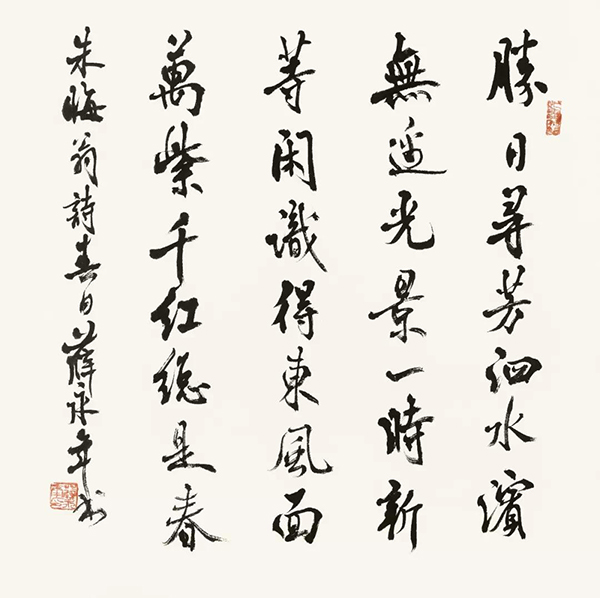 勝日尋芳泗水濱
無邊光景一時新
等闲識得東風面
萬紫千红總是春
朱晦翁詩春日薛永年书